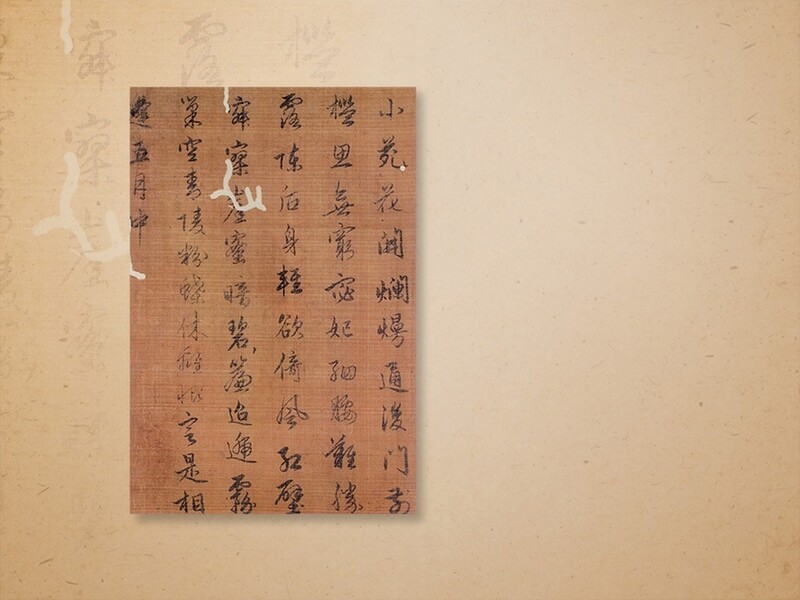 小苑花開爛熳通後門前
檻思無窮宓妃細腰難勝
露陳后身輕欲倚風紅壁
寂寞崖蜜暗碧簾迢遞霧
巢空青陵粉蝶休離恨是相
逢五月中